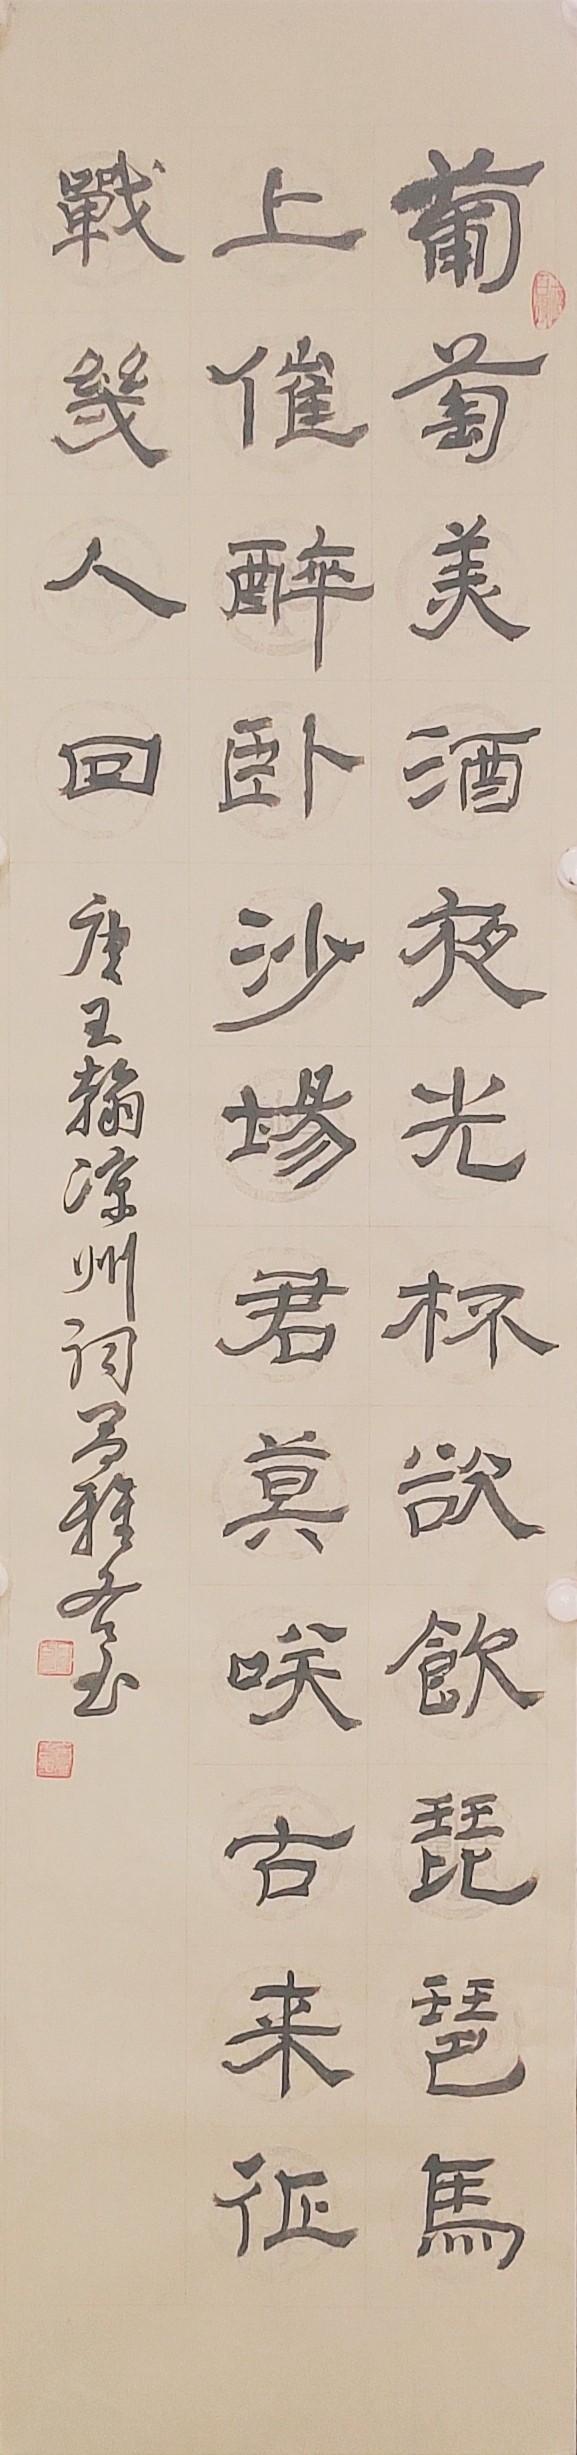 葡萄美酒夜光杯欲飲琵琶馬
上催醉卧沙場君莫咲古来征
戰幾人回
唐王翰凉州词